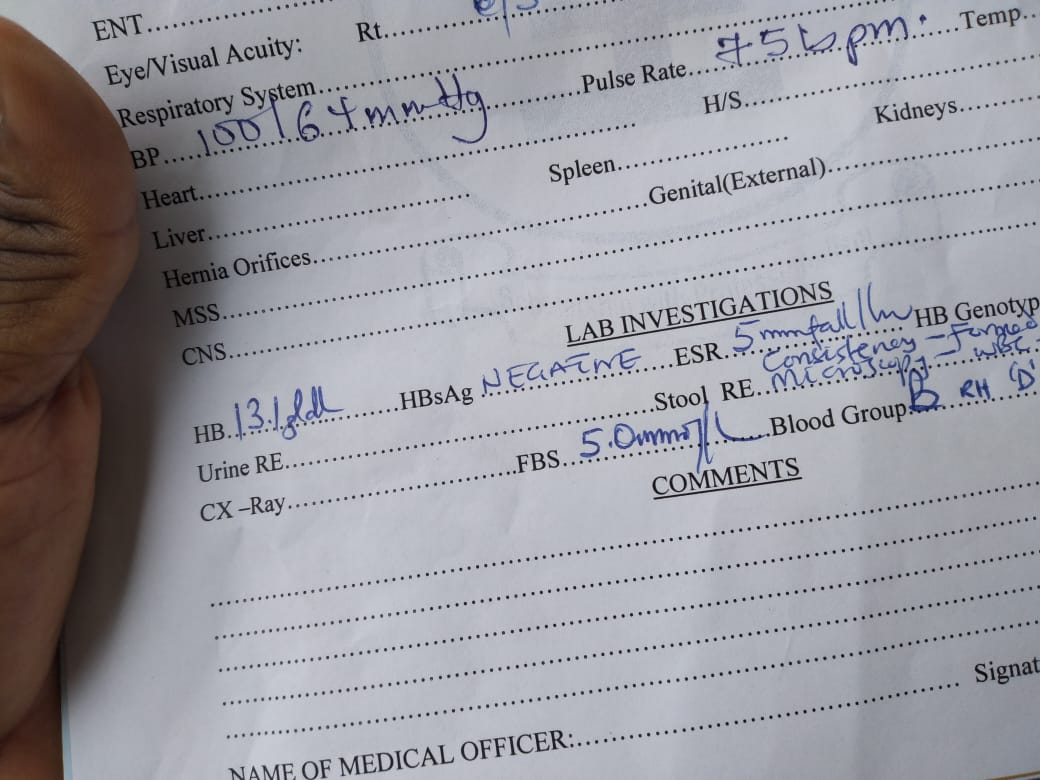 ENT..........
Eye/Visual Acuity: Rt..........
Respiratory System..........
BP.....100/64mmHg..........Pulse Rate....75bpm.......Temp...
Heart..........H/S..........
Liver..........Spleen..........Kidneys..........
Hernia Orifices..........Genital(External)..........
MSS..........
CNS..........
LAB INVESTIGATIONS
HB..13.1g/dl..........HBsAg NEGATIVE....ESR..5mmfall/hr..HB Genotyp
Urine RE..........Stool RE..Consistency - Formed
Microscopy - WBC -
CX –Ray..........FBS...5.0mmol/L.....Blood Group B RH 'D'
COMMENTS
NAME OF MEDICAL OFFICER:..........Signat